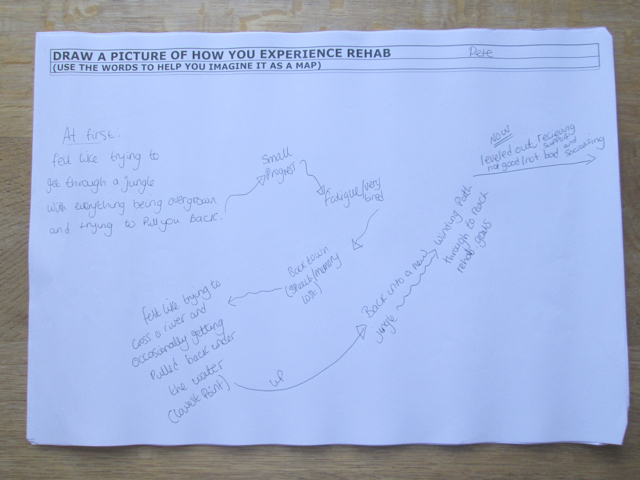 DRAW A PICTURE OF HOW YOU EXPERIENCE REHAB
Pete
(USE THE WORDS TO HELP YOU IMAGINE IT AS A MAP)
At first.
felt like trying to
get through a jungle
with everything being overgrown
and trying to pull you back.
Small
Progress
Fatigue/very
tired
Back down
(shock/memory
loss)
felt like trying to
cross a river and
occasionally getting
pulled back under
the water
(lowest point)
up
Back into a new
jungle
winding path
through to reach
rehab goals
NOW
leveled out, receiving
support
not good/not bad and socialising